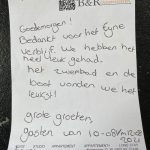 B&R
Goedemorgen!
Bedankt voor het fijne
verblijf. We hebben het
heel leuk gehad.
het zwembad en de
boot vonden we het
leukst!
grote groeten,
gasten van 10-08 t/m 12-08
2021
STUDIO APPARTEMENT